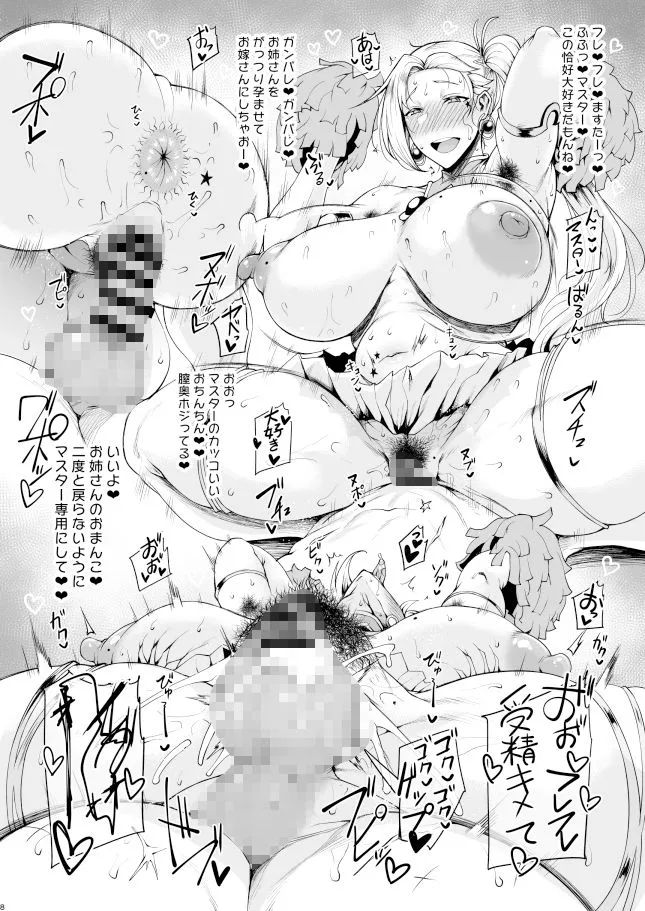 フレ♥フレ♥ますたーっ
ふふっ♥マスター♥
この恰好大好きだもんね♥
あはぁ♥
ガンバレ♥ガンバレ♥
お姉さんを
がっつり孕ませて
お嫁さんにしちゃおー♥
おっ♥
ぶるっ
んっ♥
マスター♥
ばるんっ
プポォ♥
ひく♥
ひくっ♥
ヌポォ♥
ブピッ
ヤベっ♥
キュン♥
キュン
おおっ
マスターのカッコいい
おちんちん♥♥
膣奥ホジってる♥
大好き♥
ズチュ
ヌブッ
ヌポォ
ブチュ
いいよ♥
お姉さんのおまんこ♥
二度と戻らないように
マスター専用にして♥♥
おおぉ♥
ビクッ
ゾグッ
おっ♥
ガクッ
ガクッ
びゅーっ
びゅるーっ
おおっ♥フレフレ♥
受精キメて♥
ゴクッ
ゴクゴク
ゲップ♥
ブピッ♥
8